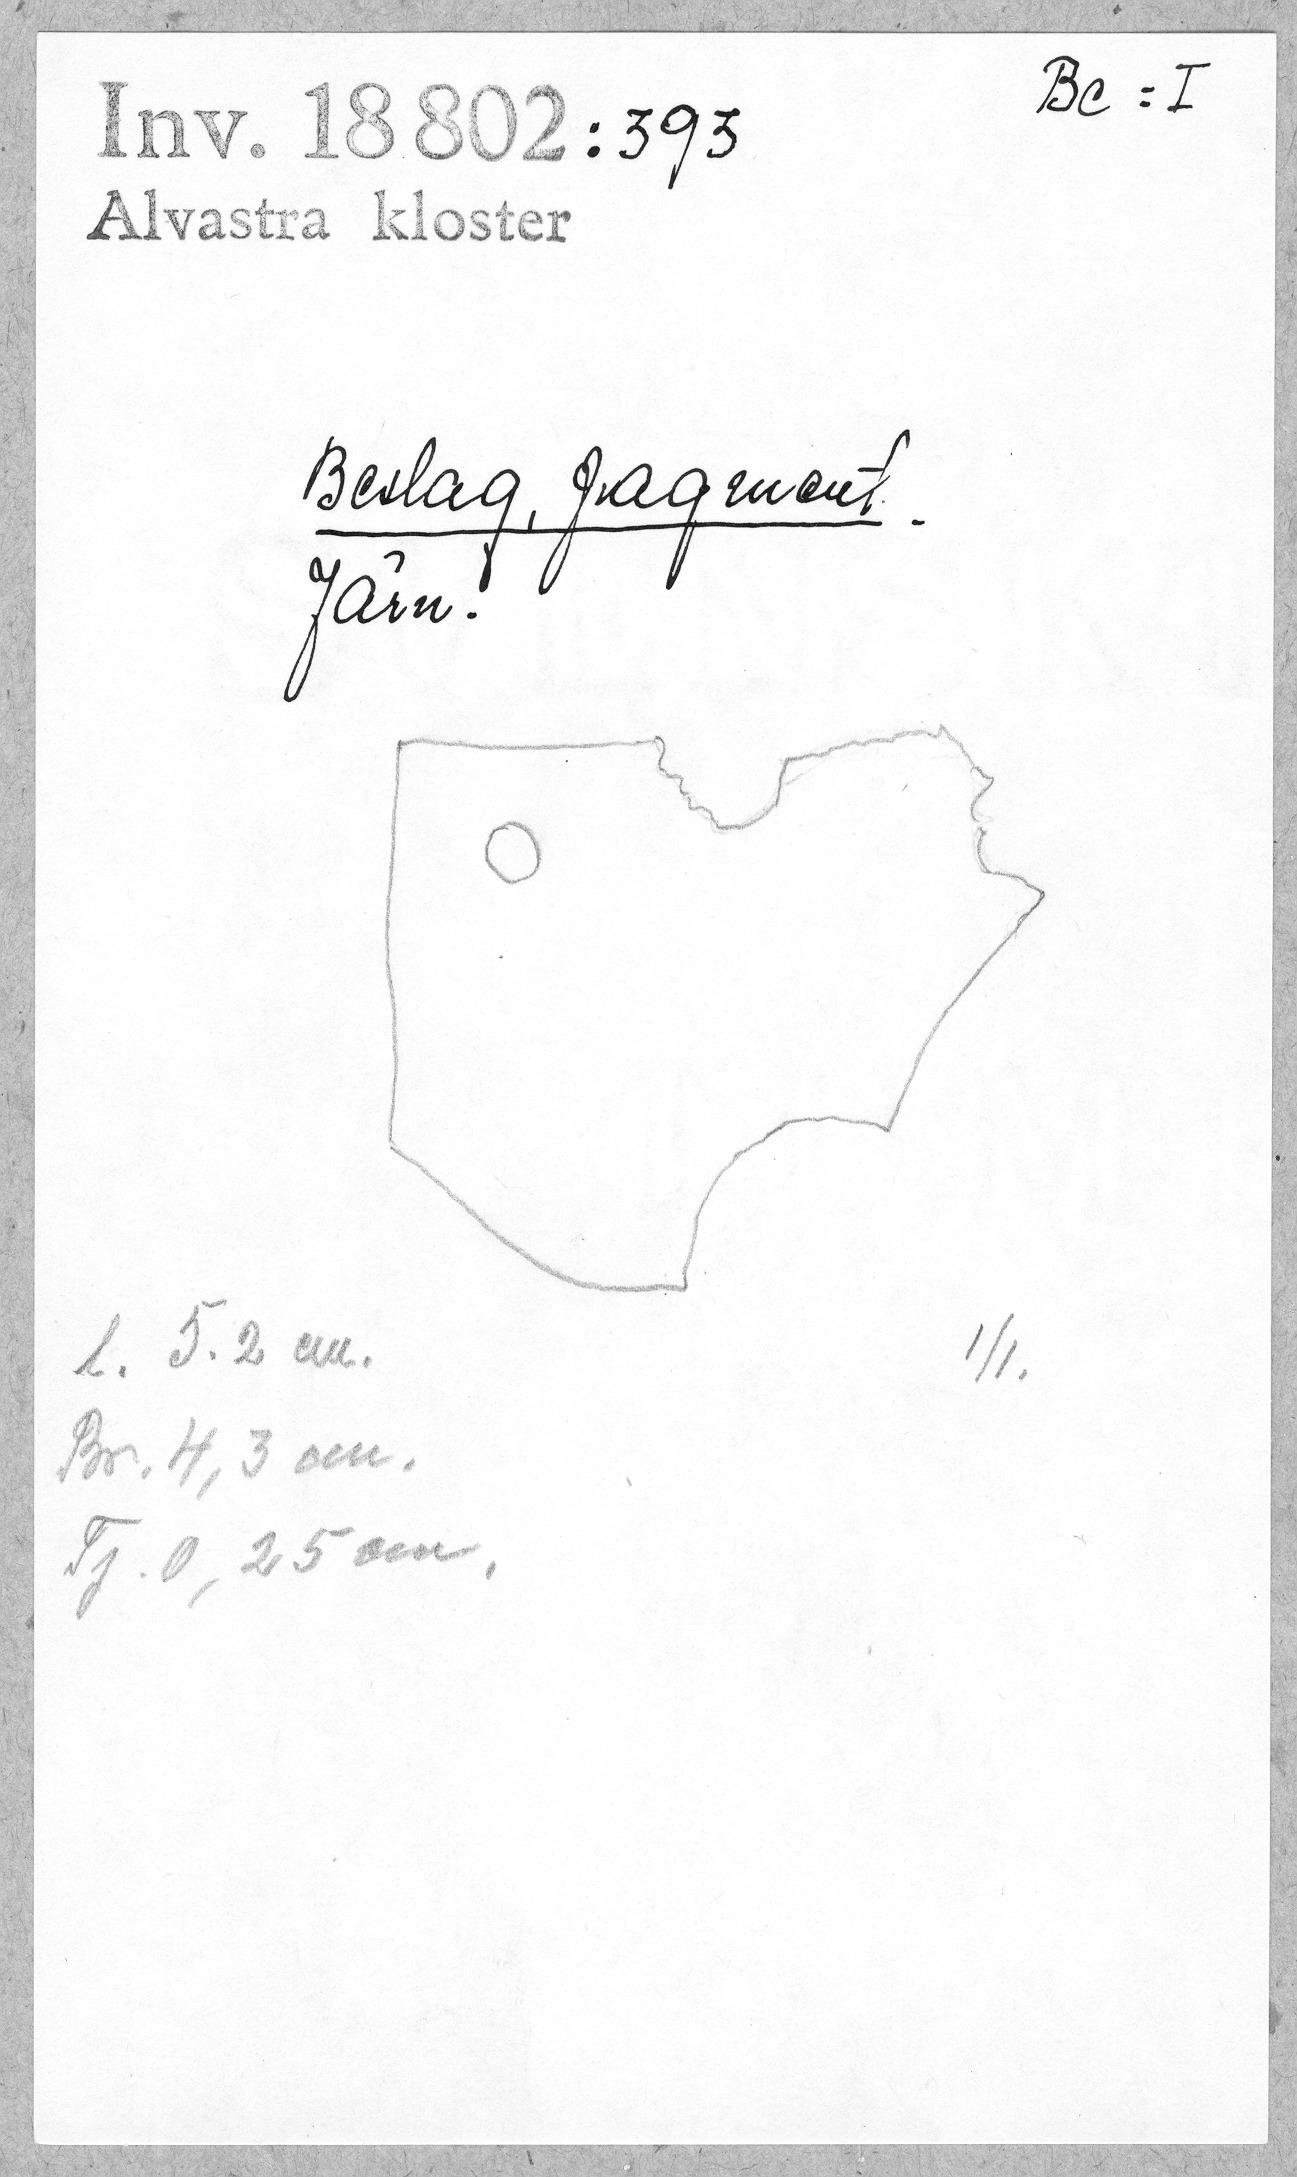 Inv. 18 802:393
Bc = I
Alvastra kloster
Beslag, fragment.
Järn.
l. 5.2 cm.
1/1.
Br. 4,3 cm.
Tj. 0,25 cm.